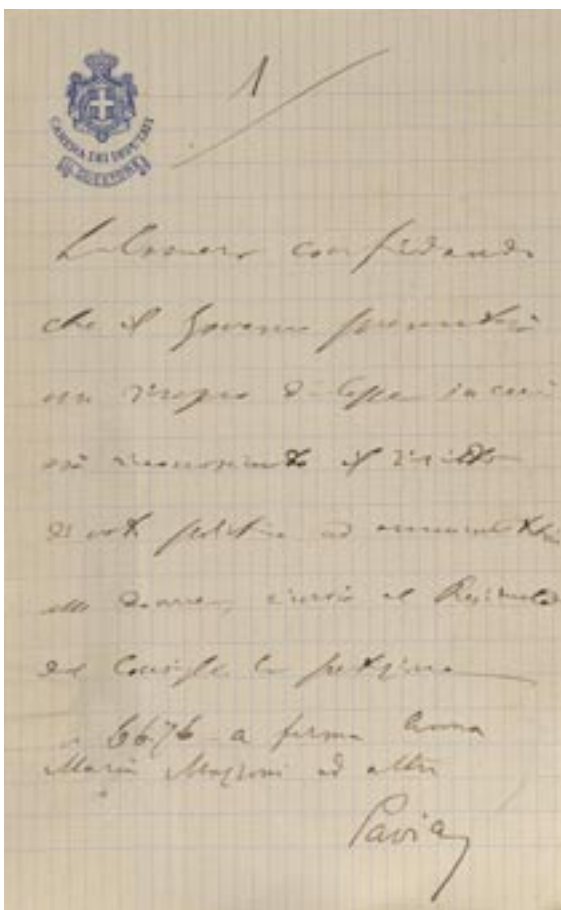 1
CAMERA DEI DEPUTATI
IL QUESTORE
La Camera confidando
che il Governo presenterà
un disegno di legge in cui
sia riconosciuto il diritto
di voto politico ed amministrativo
alle donne, rinvia al Presidente
del Consiglio la petizione
n. 6676 a firma Anna
Maria Mozzoni ed altri
Pavia